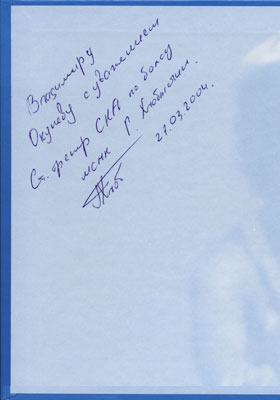 Владимиру
Окуневу с уважением
Ст. тренер СКА по боксу
мсмк Г.
27.03.2004.